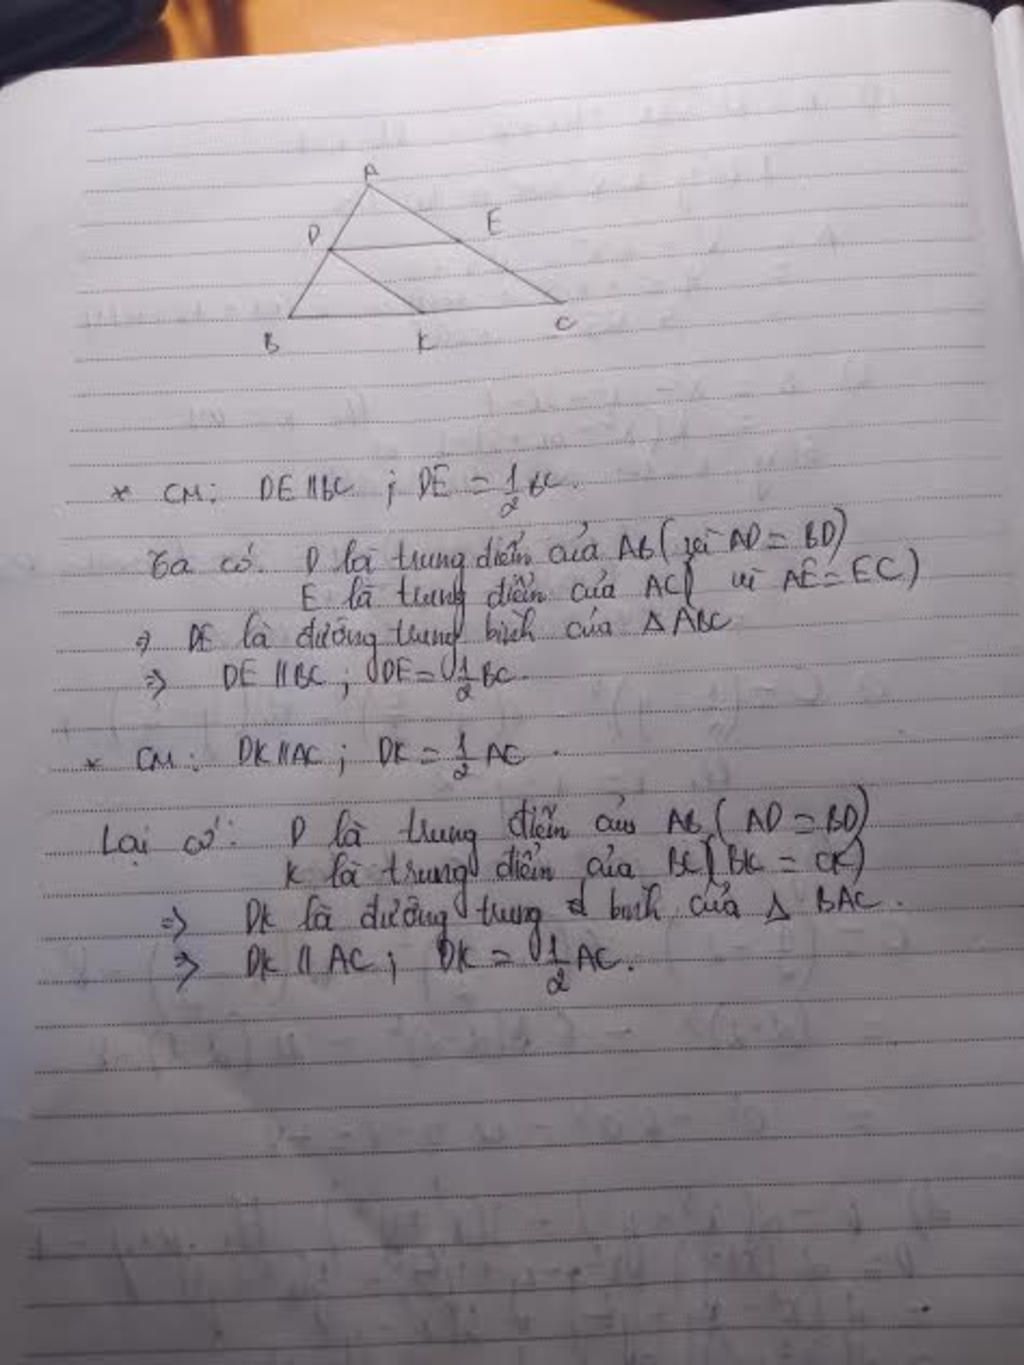 A
D E
B K C
* CM: DE // BC ; DE = 1/2 BC.
Ta có: D là trung điểm của AB ( vì AD = BD)
E là trung điểm của AC ( vì AE = EC)
⇒ DE là đường trung bình của Δ ABC
⇒ DE // BC ; DE = 1/2 BC.
* CM: DK // AC ; DK = 1/2 AC.
Lại có: D là trung điểm của AB ( AD = BD)
K là trung điểm của BC ( BK = CK)
⇒ DK là đường trung bình của Δ BAC.
⇒ DK // AC ; DK = 1/2 AC.